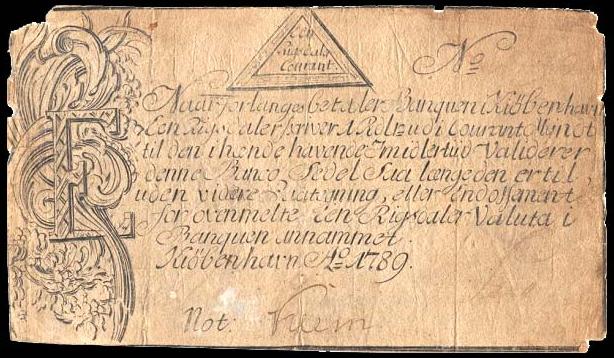 Een
Rigsdaler
Courant
No
E
Naar forlanges betaler Banquen i Kiöbenhavn
Een Rigsdaler skriver 1 Rdlr udi Courant Mynt
til den ihænde havende Imidlertid Validerer
denne Banco Sedel Saa længe den er til,
uden videre Paategning, eller Endossement
for ovenmelte Een Rigsdaler Valuta i
Banquen annammet.
Kiöbenhavn Ao 1789.
Not: